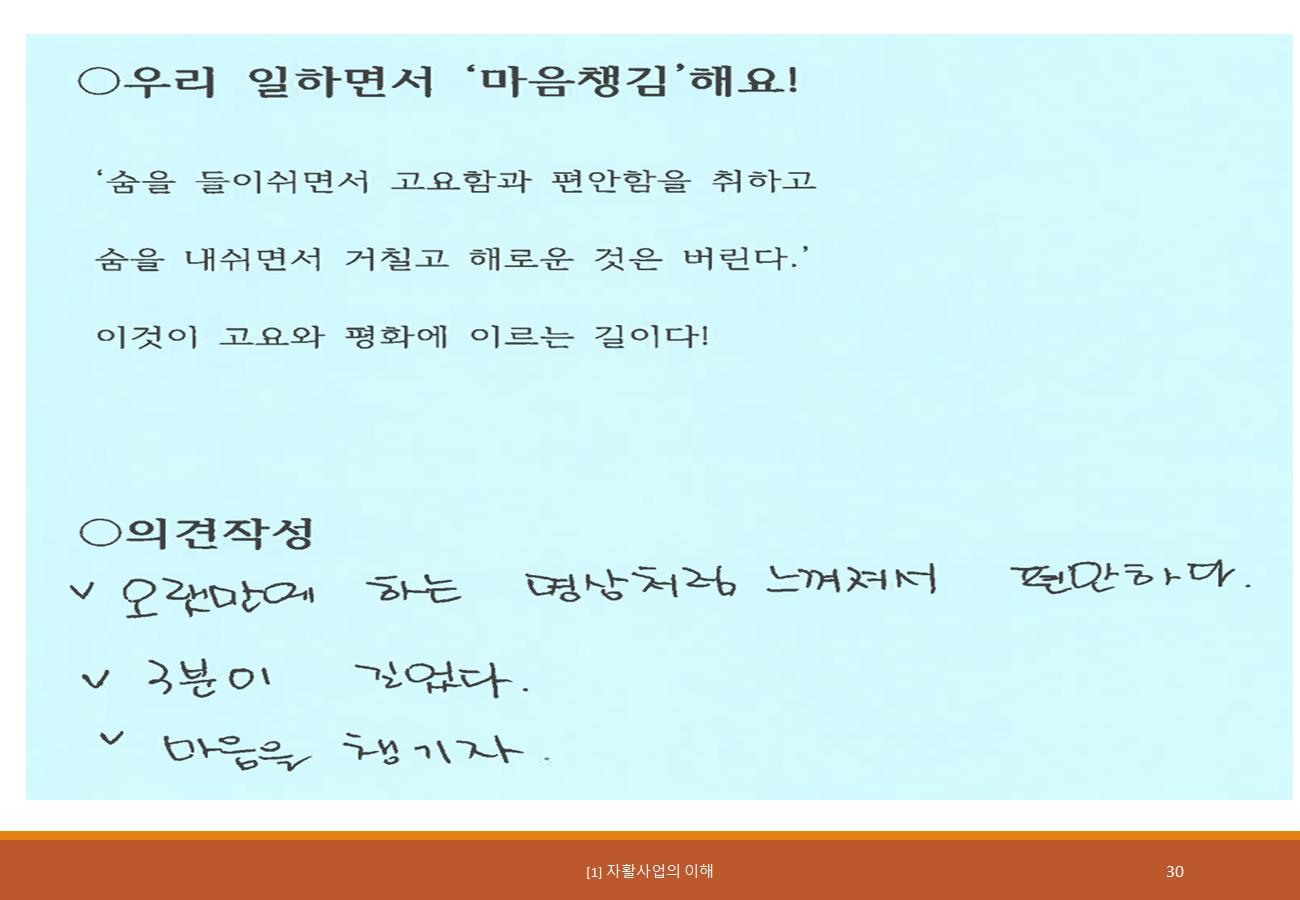 ○우리 일하면서 ‘마음챙김’해요!
‘숨을 들이쉬면서 고요함과 편안함을 취하고
숨을 내쉬면서 거칠고 해로운 것은 버린다.’
이것이 고요와 평화에 이르는 길이다!
○의견작성
✓ 오랫만에 하는 명상처럼 느껴져서 편안하다.
✓ 3분이 길었다.
✓ 마음을 챙기자.
[1] 자활사업의 이해
30